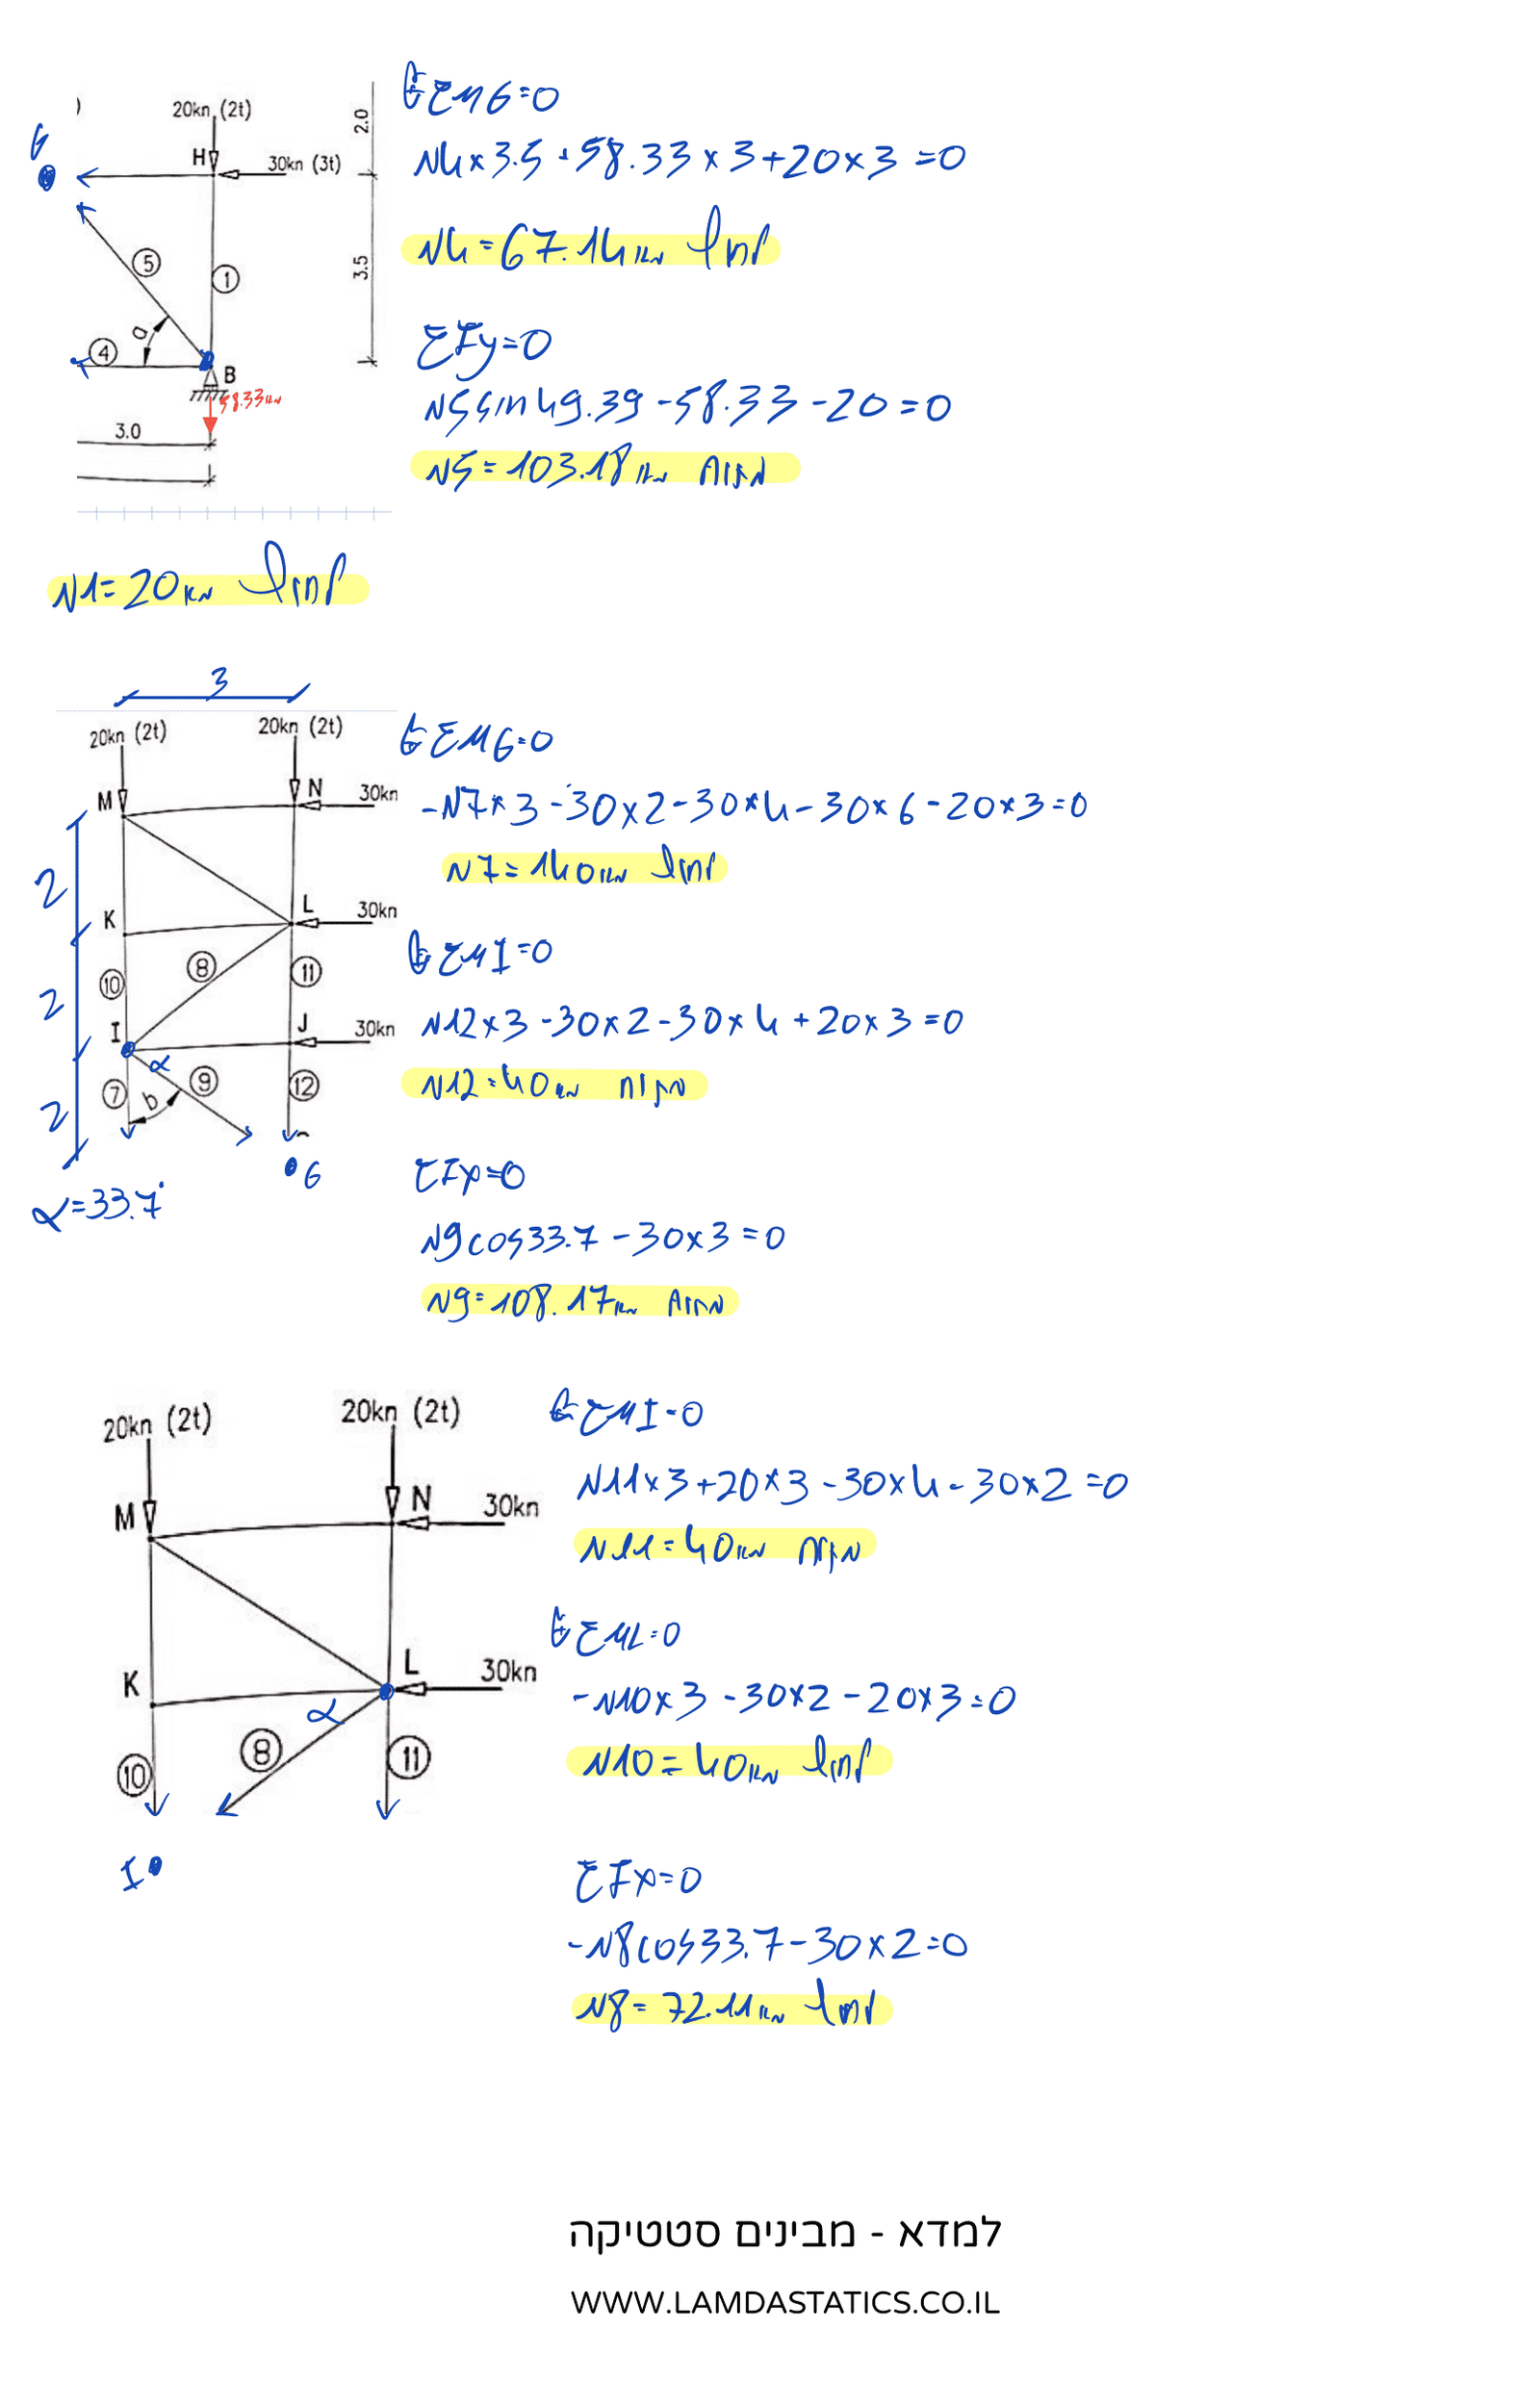 20kn (2t)
2.0
G
H
30kn (3t)
3.5
5
1
a
4
B
58.33kN
3.0
ΣMG=0
N4×3.5-58.33×3+20×3=0
N4=67.14kN לחוץ
ΣFy=0
N5sin49.39-58.33-20=0
N5=103.18kN מתוח
N1=20kN לחוץ
3
20kn (2t)
20kn (2t)
M
N
30kn
2
K
L
30kn
10
8
11
2
I
J
30kn
α
7
b
9
12
2
G
α=33.7°
ΣMG=0
-N7×3-30×2-30×4-30×6-20×3=0
N7=140kN לחוץ
ΣMI=0
N12×3-30×2-30×4+20×3=0
N12=40kN מתוח
ΣFx=0
N9cos33.7-30×3=0
N9=108.17kN מתוח
20kn (2t)
20kn (2t)
M
N
30kn
K
L
30kn
α
10
8
11
I
ΣMI=0
N11×3+20×3-30×4-30×2=0
N11=40kN מתוח
ΣML=0
-N10×3-30×2-20×3=0
N10=40kN לחוץ
ΣFx=0
-N8cos33.7-30×2=0
N8=72.11kN לחוץ
למדא - מבינים סטטיקה
WWW.LAMDASTATICS.CO.IL